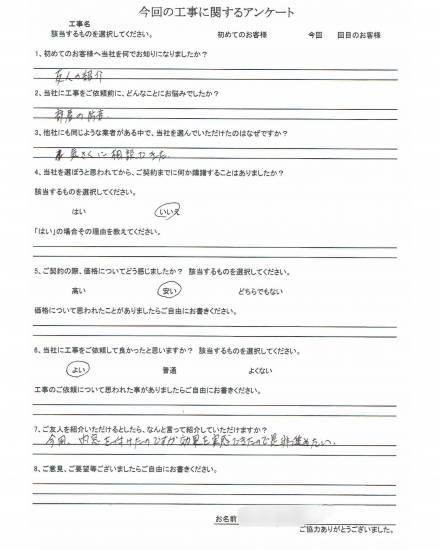 今回の工事に関するアンケート
工事名
該当するものを選択してください。 初めてのお客様 今回 回目のお客様
1、初めてのお客様へ当社を何でお知りになりましたか？
友人の紹介
2、当社に工事をご依頼前に、どんなことにお悩みでしたか？
部屋の防音
3、他社にも同じような業者がある中で、当社を選んでいただけたのはなぜですか？
気さくに相談できた
4、当社を選ぼうと思われてから、ご契約までに何か躊躇することはありましたか？
該当するものを選択してください。
はい いいえ
「はい」の場合その理由を教えてください。
5、ご契約の際、価格についてどう感じましたか？ 該当するものを選択してください。
高い 安い どちらでもない
価格について思われたことがありましたらご自由にお書きください。
6、当社に工事をご依頼して良かったと思いますか？ 該当するものを選択してください。
よい 普通 よくない
工事のご依頼について思われた事がありましたらご自由にお書きください。
7、ご友人を紹介いただけるとしたら、なんと言って紹介していただけますか？
今回、内窓を付けたのですが効果を実感できたので是非進めたい。
8、ご意見、ご要望等ございましたらご自由にお書きください。
お名前
ご協力ありがとうございました。